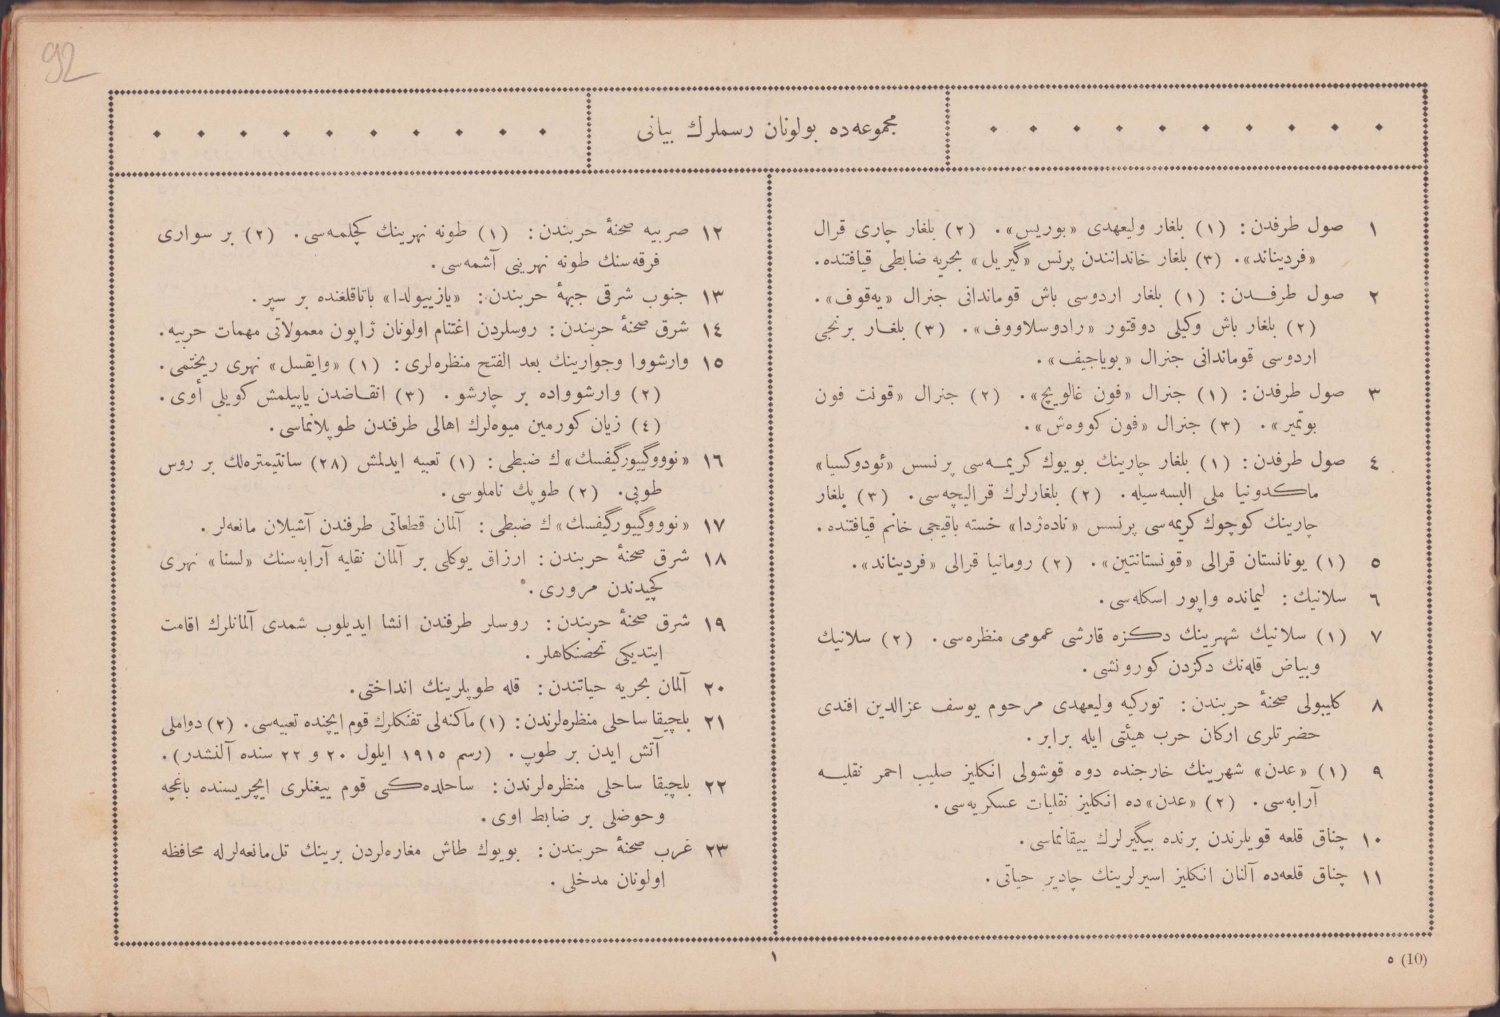 92
مجموعه‌ده بولونان رسملرك بیانی
١ صول طرفدن: (١) بلغار ولیعهدی «بوریس». (٢) بلغار چاری قرال
«فردیناند». (٣) بلغار خاندانندن پرنس «گیریل» بحریه ضابطی قیافتنده.
٢ صول طرفدن: (١) بلغار اردوسی باش قوماندانی جنرال «یه‌قوف».
(٢) بلغار باش وكیلی دوقتور «رادوسلاووف». (٣) بلغار برنجی
اردوسی قوماندانی جنرال «بویاجیف».
٣ صول طرفدن: (١) جنرال «فون غالویچ». (٢) جنرال «قونت فون
بوتمیر». (٣) جنرال «فون كووه‌ش».
٤ صول طرفدن: (١) بلغار چارینك بویوك كریمه‌سی پرنسس «ئودوكسیا»
ماكدونیا ملی البسه‌سیله. (٢) بلغارلرك قرالیچه‌سی. (٣) بلغار
چارینك كوچوك كریمه‌سی پرنسس «ناده‌ژدا» خسته باقیجی خانم قیافتنده.
٥ (١) یونانستان قرالی «قونستانتین». (٢) رومانیا قرالی «فردیناند».
٦ سلانیك: لیمانده واپور اسكله‌سی.
٧ (١) سلانیك شهرینك دكزه قارشی عمومی منظره‌سی. (٢) سلانیك
وبیاض قله‌نك دكزدن كورونشی.
٨ كلیبولی صحنهٔ حربندن: توركیه ولیعهدی مرحوم یوسف عزالدین افندی
حضرتلری اركان حرب هیئتی ایله برابر.
٩ (١) «عدن» شهرینك خارجنده دوه قوشولی انكلیز صلیب احمر نقلیه
آرابه‌سی. (٢) «عدن»ده انكلیز نقلیات عسكریه‌سی.
١٠ چناق قلعه قویلرندن برنده بیگیرلرك ییقانماسی.
١١ چناق قلعه‌ده آلنان انكلیز اسیرلرینك چادیر حیاتی.
١٢ صربیه صحنهٔ حربندن: (١) طونه نهرینك كچلمه‌سی. (٢) بر سواری
فرقه‌سنك طونه نهرینی آشمه‌سی.
١٣ جنوب شرقی جبههٔ حربندن: «یازییولدا» باتاقلغنده بر سپر.
١٤ شرق صحنهٔ حربندن: روسلردن اغتنام اولونان ژاپون معمولاتی مهمات حربیه.
١٥ وارشووا وجوارینك بعد الفتح منظره‌لری: (١) «وایقسل» نهری ریختمی.
(٢) وارشوواده بر چارشو. (٣) انقاضدن یاپیلمش كویلی أوی.
(٤) زیان كورمین میوه‌لرك اهالی طرفندن طوپلانماسی.
١٦ «نووو‌گییورگیفسك»ك ضبطی: (١) تعبیه ایدلمش (٢٨) سانتیمتره‌لك بر روس
طوپی. (٢) طوپك ناملوسی.
١٧ «نووو‌گییورگیفسك»ك ضبطی: آلمان قطعاتی طرفندن آشیلان مانعه‌لر.
١٨ شرق صحنهٔ حربندن: ارزاق یوكلی بر آلمان نقلیه آرابه‌سنك «لسنا» نهری
كچیدندن مروری.
١٩ شرق صحنهٔ حربندن: روسلر طرفندن انشا ایدیلوب شمدی آلمانلرك اقامت
ایتدیكی تحصنكاهلر.
٢٠ آلمان بحریه حیاتندن: قله طوپلرینك انداختی.
٢١ بلچیقا ساحلی منظره‌لرندن: (١) ماكنه‌لی تفنكلرك قوم ایچنده تعبیه‌سی. (٢) دواملی
آتش ایدن بر طوپ. (رسم ١٩١٥ ایلول ٢٠ و ٢٢ سنده آلنشدر).
٢٢ بلچیقا ساحلی منظره‌لرندن: ساحلده‌كی قوم ییغنلری ایچریسنده باغچه
وحوضلی بر ضابط اوی.
٢٣ غرب صحنهٔ حربندن: بویوك طاش مغاره‌لردن برینك تل‌مانعه‌لرله محافظه
اولونان مدخلی.
١
٥ (10)